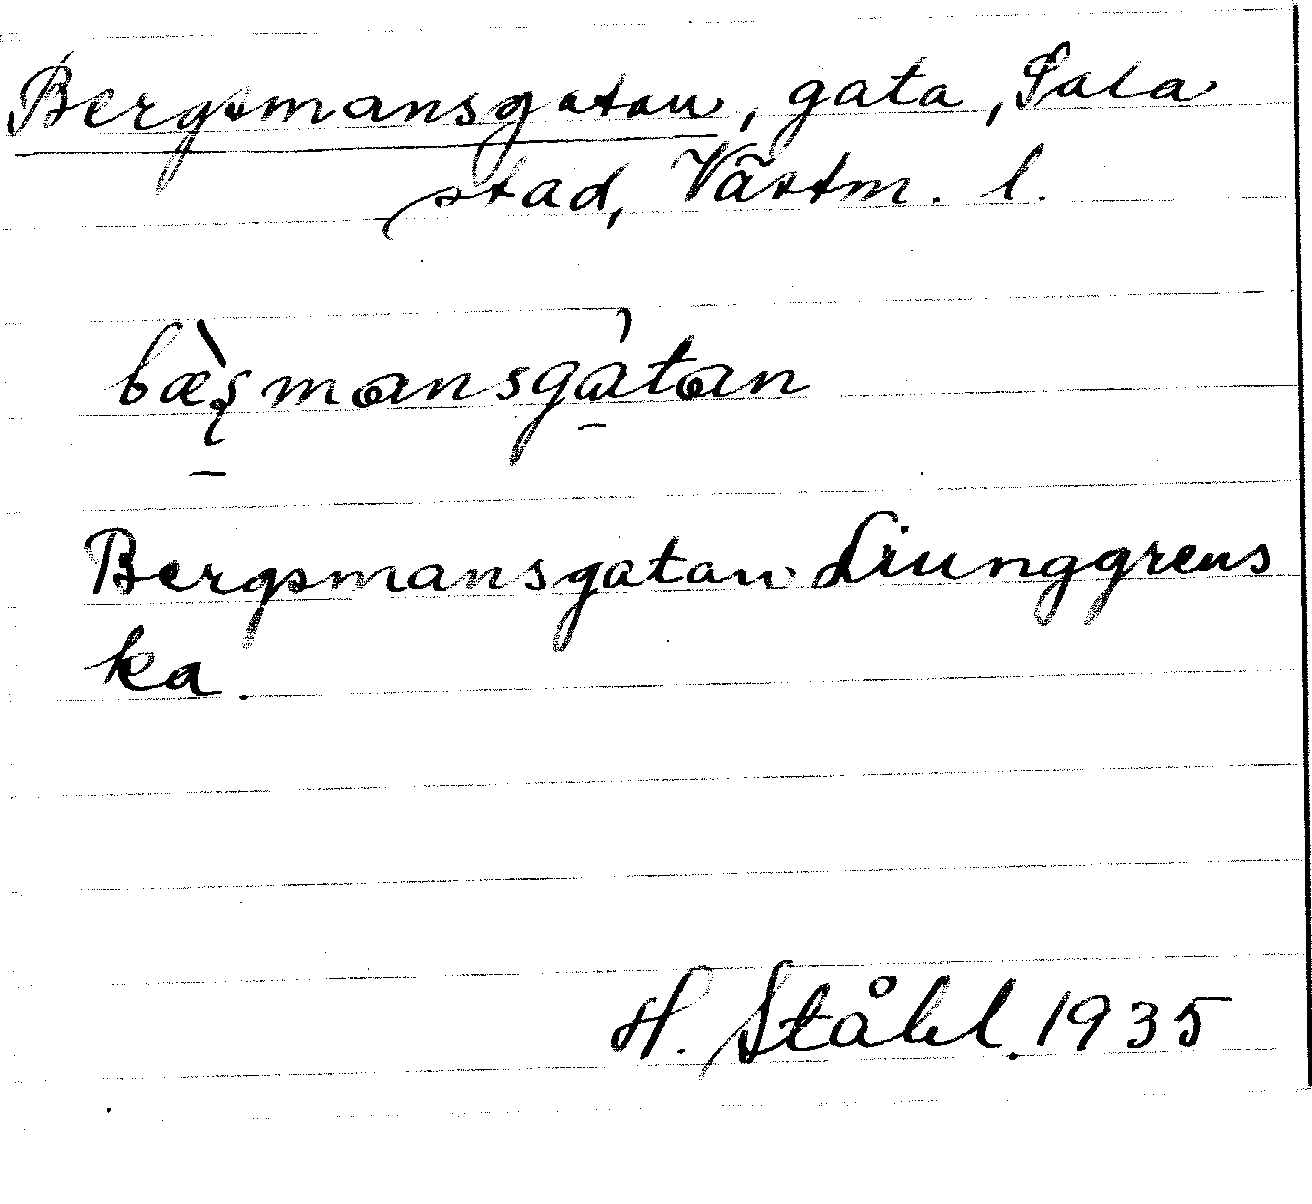 Bergsmansgatan, gata, Sala
stad, Västm. l.
bæ̀șmansgátan
Bergsmansgatan Liunggrens
ka.
H. Ståhl. 1935